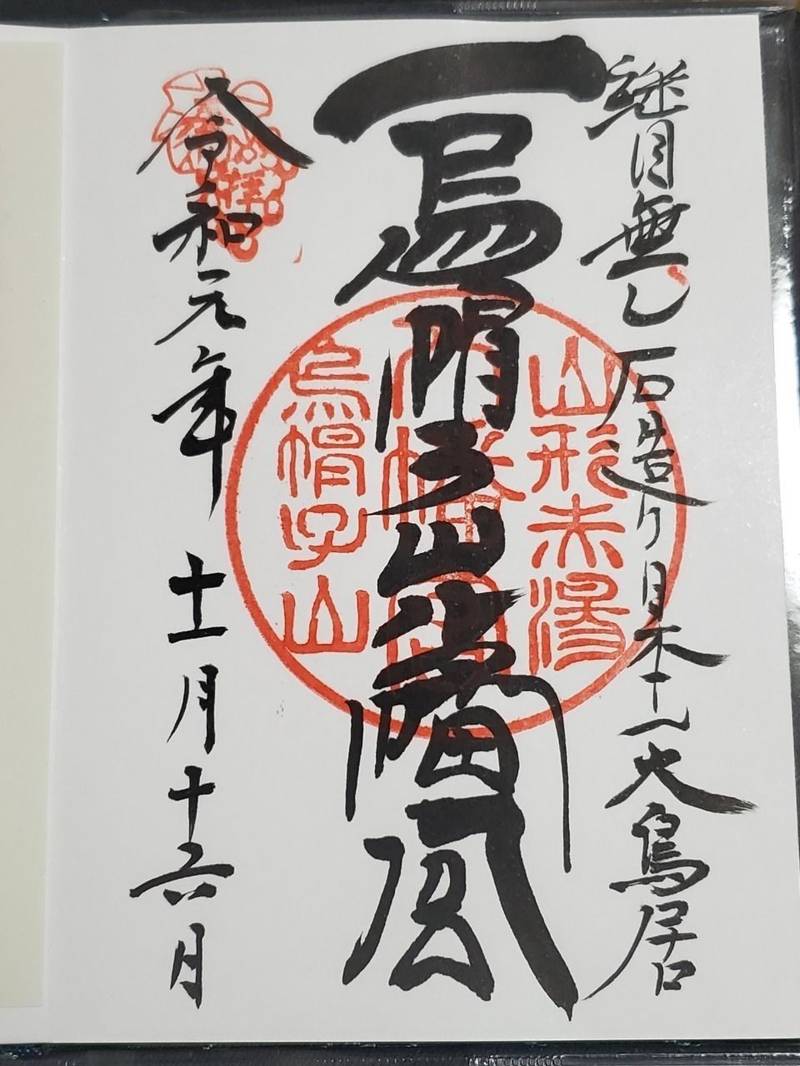 継目無し石造り日本一大鳥居
烏帽子山八幡宮
令和元年十一月十六日
山形赤湯
八幡宮
烏帽子山